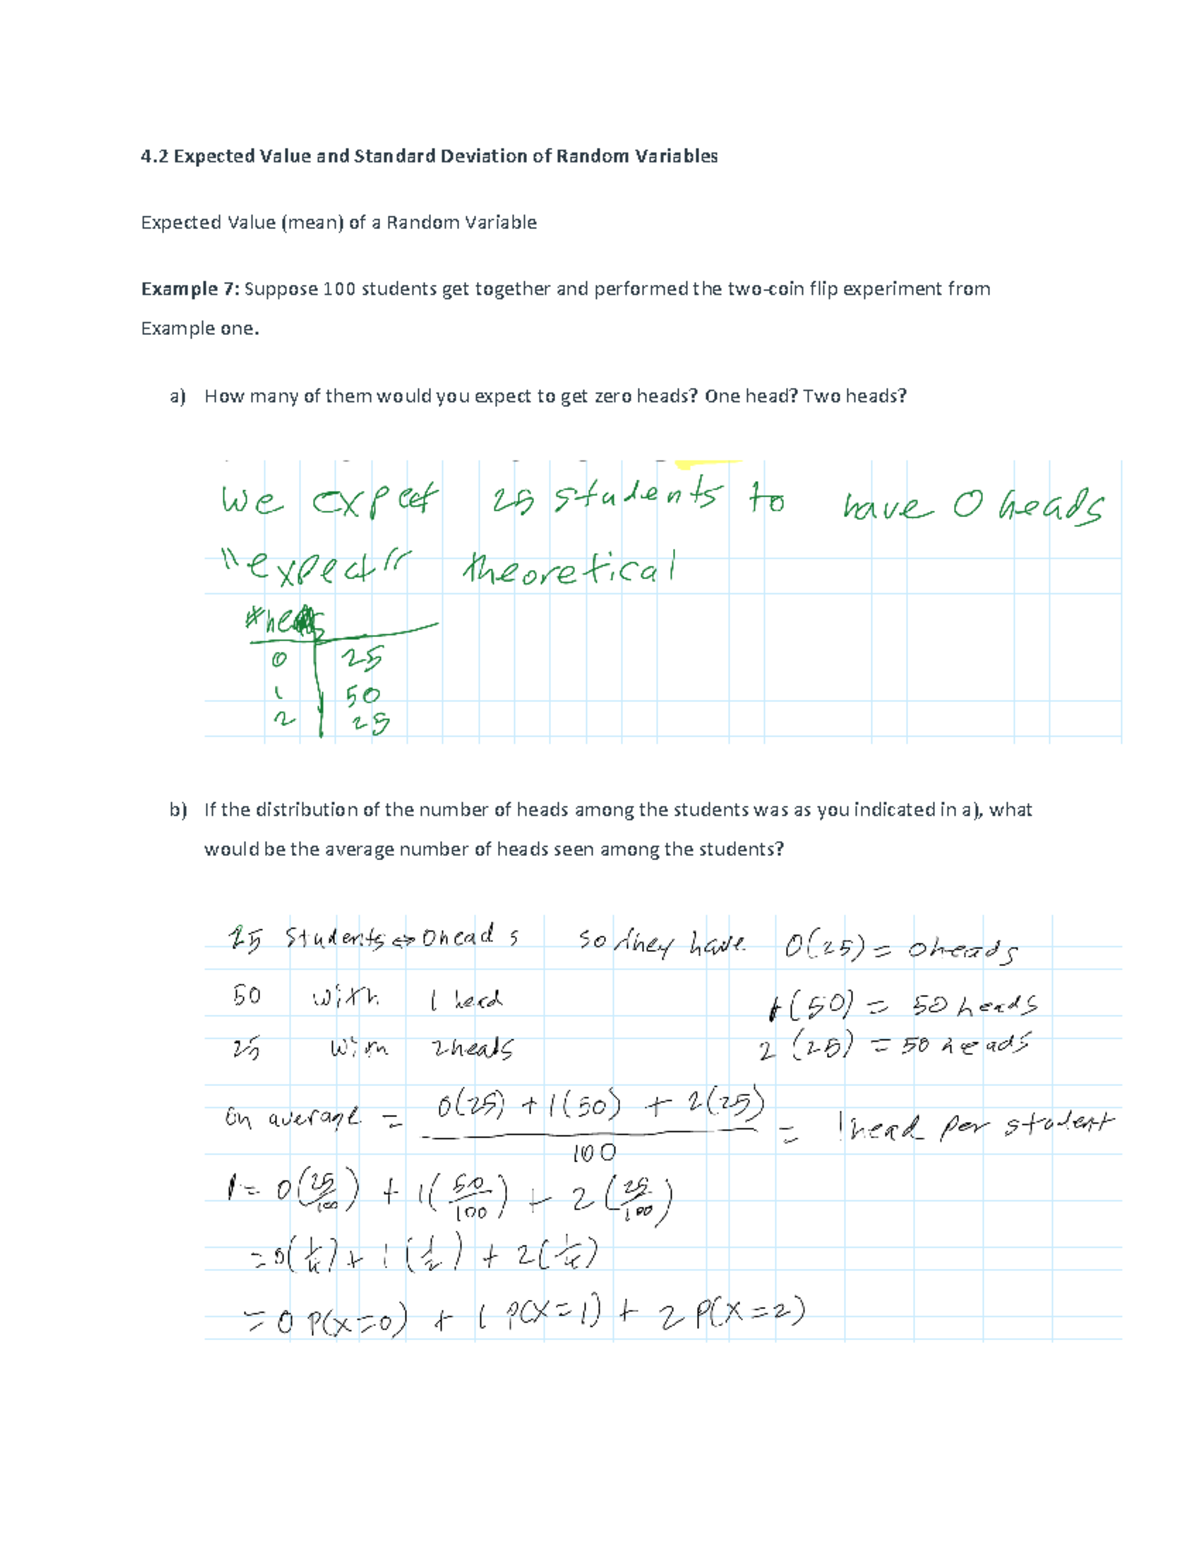 4.2 Expected Value and Standard Deviation of Random Variables
Expected Value (mean) of a Random Variable
Example 7: Suppose 100 students get together and performed the two-coin flip experiment from
Example one.
a) How many of them would you expect to get zero heads? One head? Two heads?
We expect 25 students to have 0 heads
"expect" theoretical
#heads
0 25
1 50
2 25
b) If the distribution of the number of heads among the students was as you indicated in a), what
would be the average number of heads seen among the students?
25 students ↔ 0 heads so they have 0(25) = 0 heads
50 with 1 head 1(50) = 50 heads
25 with 2 heads 2(25) = 50 heads
On average = 0(25) + 1(50) + 2(25) / 100 = 1 head per student
1 = 0(25/100) + 1(50/100) + 2(25/100)
= 0(1/4) + 1(1/2) + 2(1/4)
= 0 P(X=0) + 1 P(X=1) + 2 P(X=2)